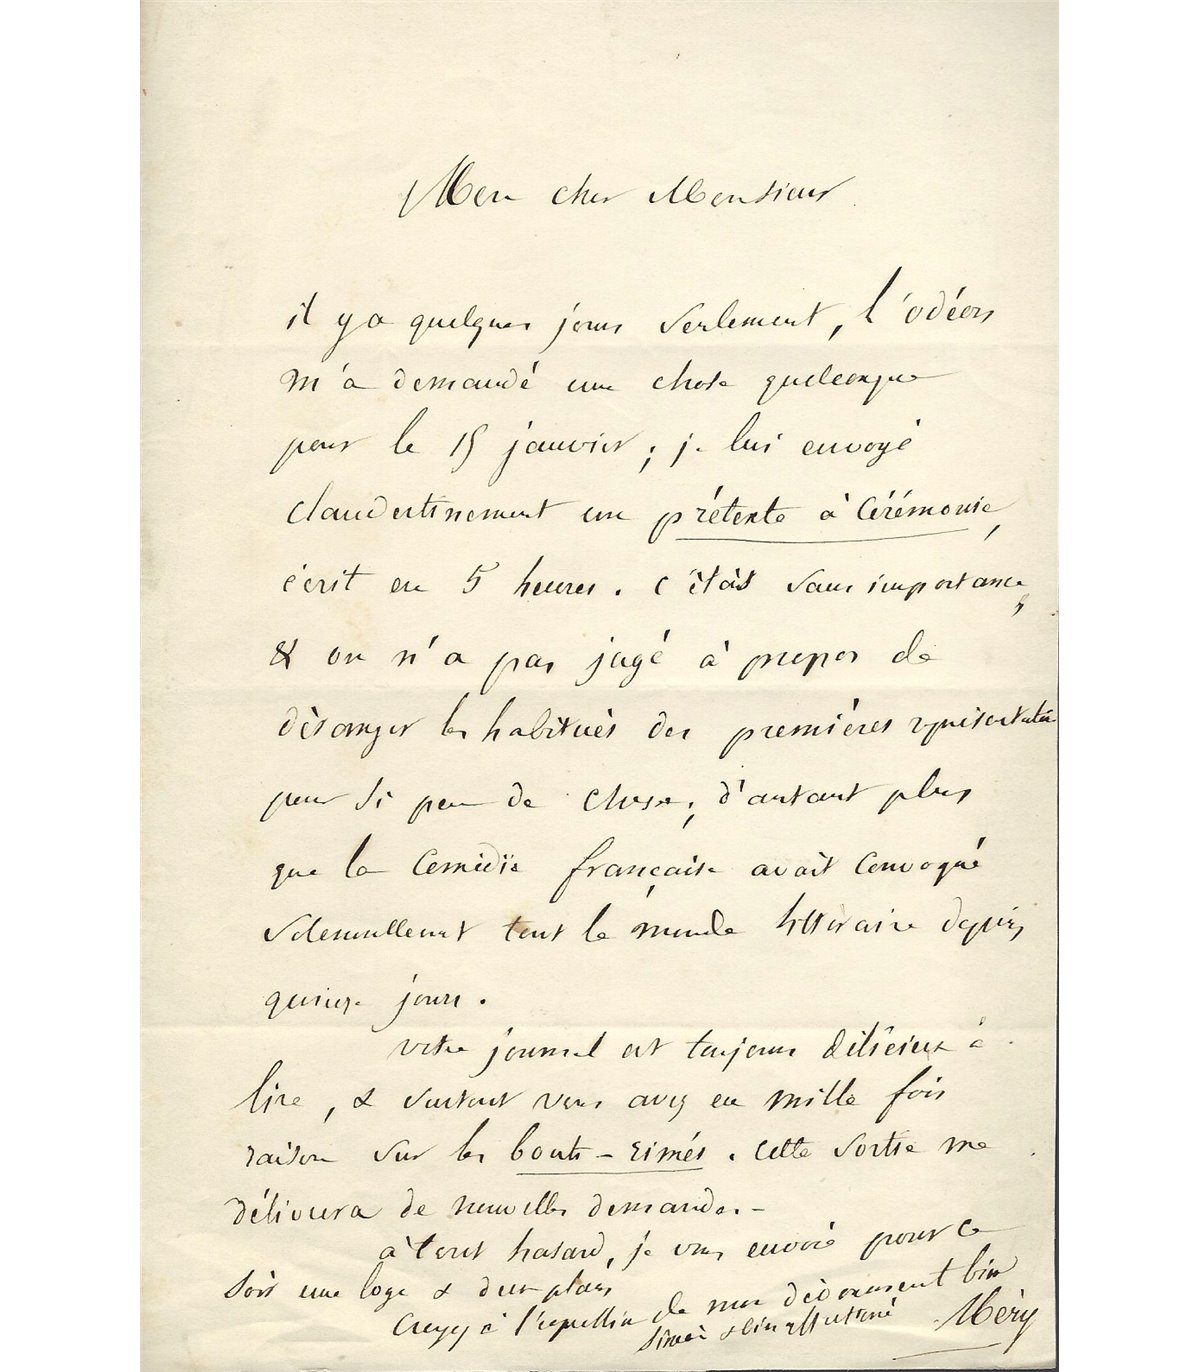 Mon cher Monsieur
il y a quelques jours seulement, l'odéon
m'a demandé une chose quelconque
pour le 15 janvier ; je lui envoyé
clandestinement un prétexte à Cérémonie,
écrit en 5 heures. c'était sans importance,
& on n'a pas jugé à propos de
déranger les habitués des premières représentations
pour si peu de chose, d'autant plus
que la Comédie française avait convoqué
solennellement tout le monde littéraire depuis
quinze jours.
votre journal est toujours délicieux à
lire, & surtout vous avez eu mille fois
raison sur les bouts-rimés. Cette sortie me
délivrera de nouvelles demandes.-
à tout hasard, je vous envoie pour ce
soir une loge & deux places
Croyez à l'expression de mon dévouement bien
sincère & bien affectionné
Méry